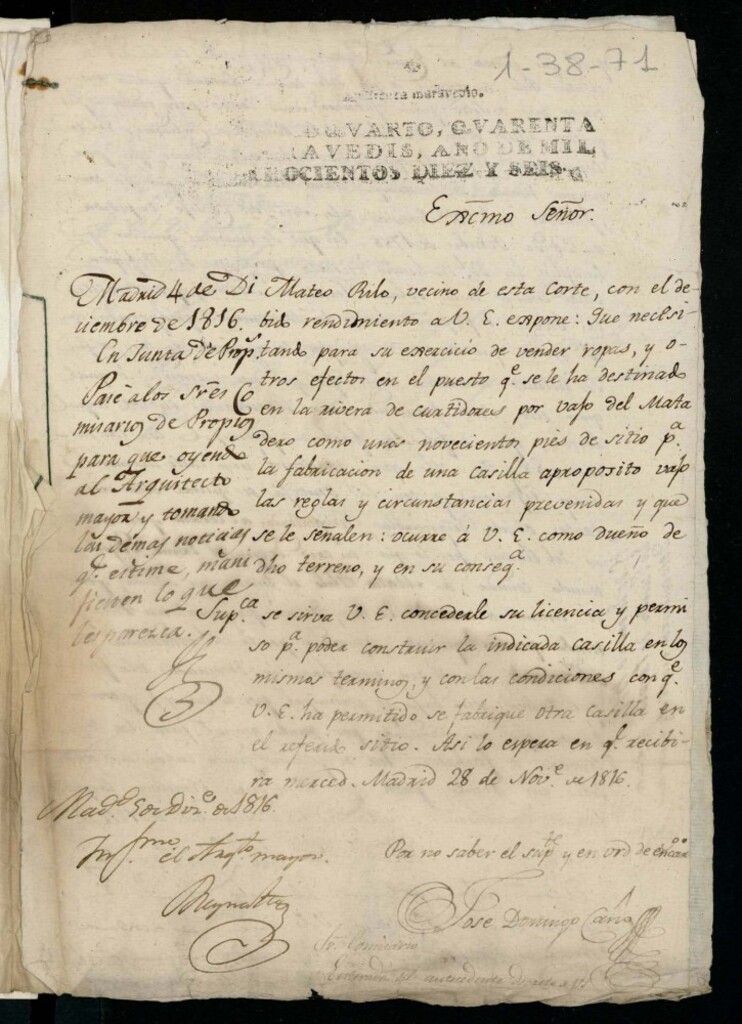 1-38-71
maravedis.
QVARTO, QVARENTA
RAVEDIS, AÑO DE MIL
OCHOCIENTOS DIEZ Y SEIS.
Excmo Señor.
Mateo Rilo, vecino de esta Corte, con el de
bido rendimiento a V. E. expone: Que necesi
tando para su exercicio de vender ropas, y o
tros efectos en el puesto q.e se le ha destinado
en la rivera de curtidores por vajo del Mata
dero como unos novecientos pies de sitio p.a
la fabricacion de una casilla aproposito vajo
las reglas y circunstancias prevenidas y que
se le señalen: ocurre á V. E. como dueño de
dho terreno, y en su conseq.a
Sup.ca se sirva V. E. concederle su licencia y permi
so p.a poder construir la indicada casilla en los
mismos terminos, y con las condiciones con q.e
V. E. ha permitido se fabrique otra casilla en
el referido sitio. Asi lo espera en q.e recibi
ra merced. Madrid 28 de Nov.e de 1816.
Por no saber el sup.te y en vrd de encar
Jose Domingo
Madrid 4 de Di
ciembre de 1816.
En Junta de Prop.s
Pase a los Sres Co
misarios de Propios
para que oyendo
al Arquitecto
mayor y tomando
las demas noticias
q.e estime, mani
fiesten lo que
les parezca.
Mad.d 5 de Diz.e de 1816.
Informe el Arq.to mayor.
Sr. Comisario